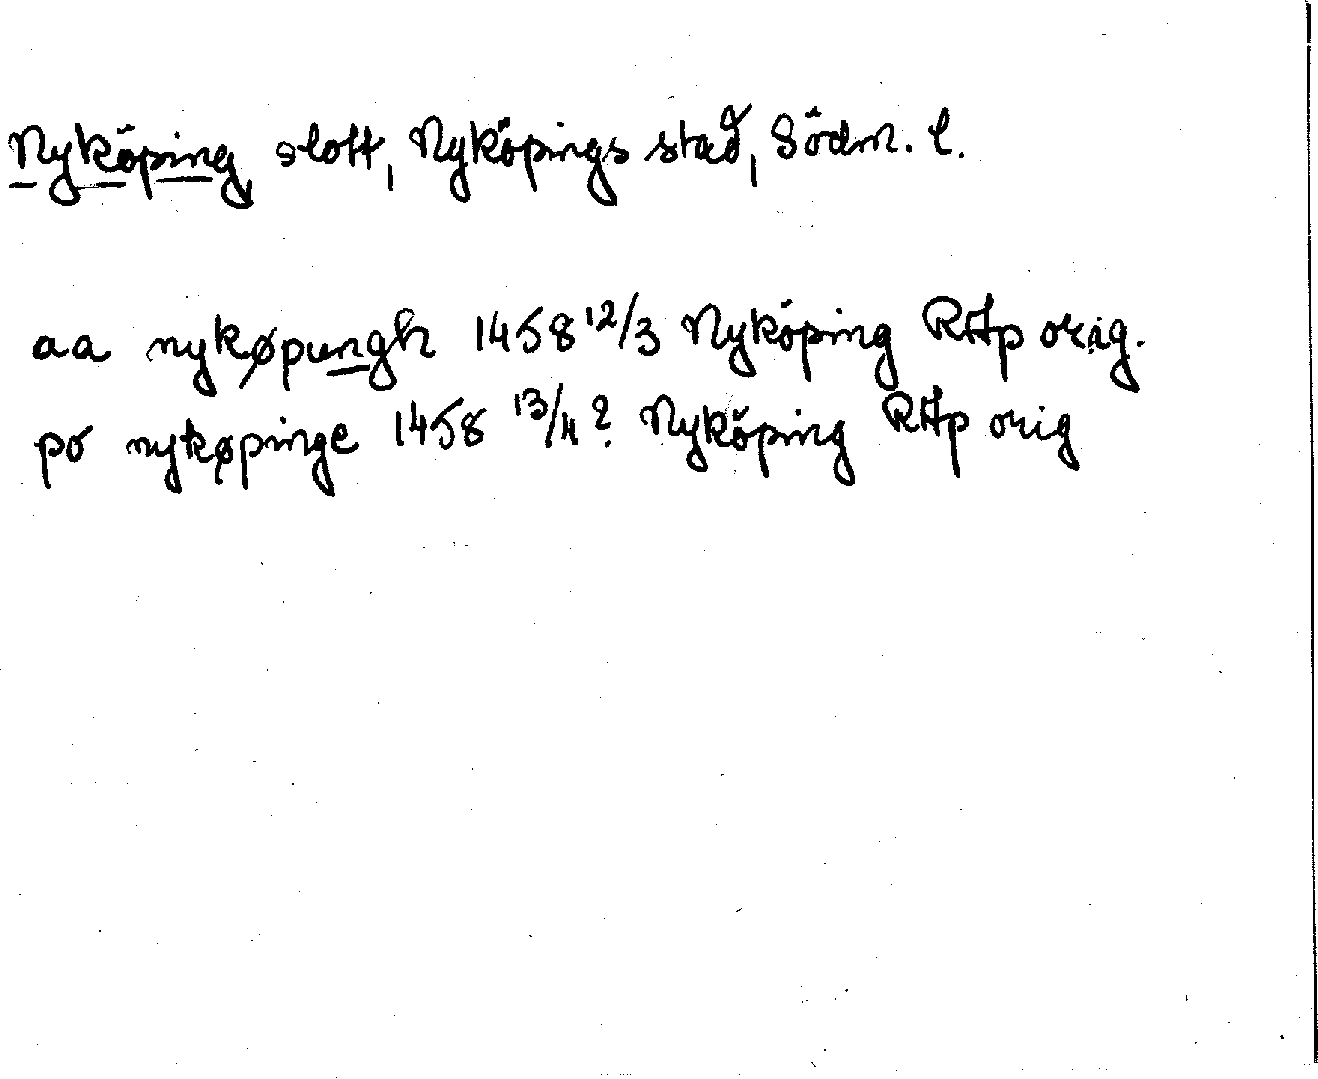 Nyköping, slott, Nyköpings stad, Södm. l.
aa nykøpungh 1458 12/3 Nyköping RAp orig.
po nykøpinge 1458 13/4? Nyköping RAp orig